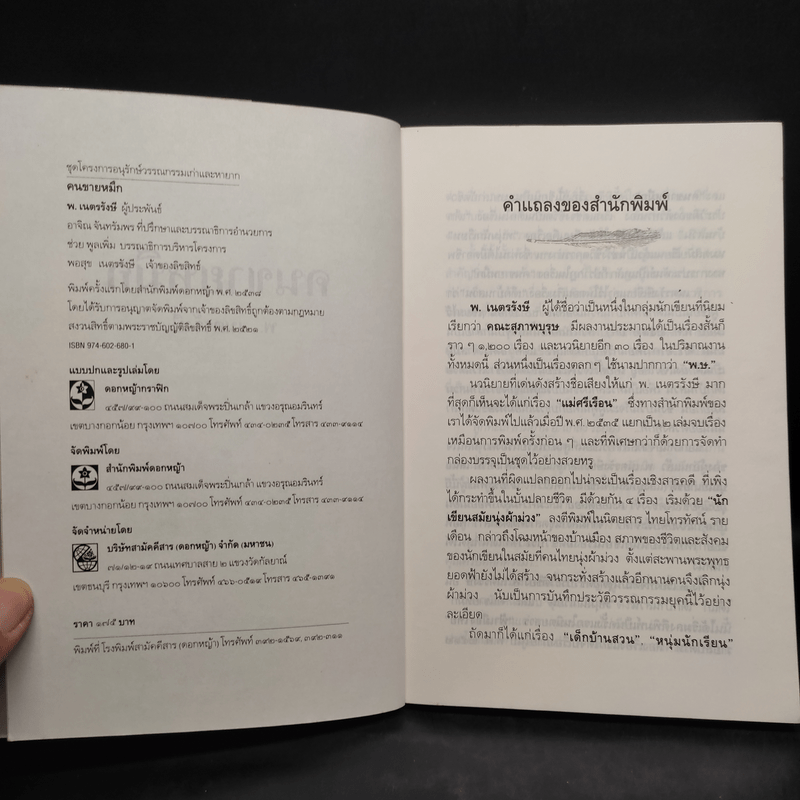 ชุดโครงการอนุรักษ์วรรณกรรมเก่าและหายาก
คนขายหมึก
พ. เนตรรังษี ผู้ประพันธ์
อาจิณ จันทรัมพร ที่ปรึกษาและบรรณาธิการอำนวยการ
ช่วย พูลเพิ่ม บรรณาธิการบริหารโครงการ
พอสุข เนตรรังษี เจ้าของลิขสิทธิ์
พิมพ์ครั้งแรกโดยสำนักพิมพ์ดอกหญ้า พ.ศ. ๒๕๓๘
โดยได้รับการอนุญาตจัดพิมพ์จากเจ้าของลิขสิทธิ์ถูกต้องตามกฎหมาย
สงวนสิทธิ์ตามพระราชบัญญัติลิขสิทธิ์ พ.ศ. ๒๕๒๑
ISBN 974-602-680-1
แบบปกและรูปเล่มโดย
ดอกหญ้ากราฟิก
๔๕๗/๙๙-๑๐๐ ถนนสมเด็จพระปิ่นเกล้า แขวงอรุณอมรินทร์
เขตบางกอกน้อย กรุงเทพฯ ๑๐๗๐๐ โทรศัพท์ ๔๓๔-๐๒๓๕ โทรสาร ๔๓๓-๙๑๑๔
จัดพิมพ์โดย
สำนักพิมพ์ดอกหญ้า
๔๕๗/๙๙-๑๐๐ ถนนสมเด็จพระปิ่นเกล้า แขวงอรุณอมรินทร์
เขตบางกอกน้อย กรุงเทพฯ ๑๐๗๐๐ โทรศัพท์ ๔๓๔-๐๒๓๕ โทรสาร ๔๓๓-๙๑๑๔
จัดจำหน่ายโดย
บริษัทสามัคคีสาร (ดอกหญ้า) จำกัด (มหาชน)
๗๑/๑๒-๑๙ ถนนเทศบาลสาย ๒ แขวงวัดกัลยาณ์
เขตธนบุรี กรุงเทพฯ ๑๐๖๐๐ โทรศัพท์ ๔๖๖-๐๕๑๙ โทรสาร ๔๖๕-๑๓๙๑
ราคา ๑๗๕ บาท
พิมพ์ที่ โรงพิมพ์สามัคคีสาร (ดอกหญ้า) โทรศัพท์ ๓๙๒-๑๕๖๙, ๓๙๒-๓๑๑
คำแถลงของสำนักพิมพ์
พ. เนตรรังษี ผู้ได้ชื่อว่าเป็นหนึ่งในกลุ่มนักเขียนที่นิยม
เรียกว่า คณะสุภาพบุรุษ มีผลงานประมาณได้เป็นเรื่องสั้นก็
ราว ๆ ๑,๒๐๐ เรื่อง และนวนิยายอีก ๓๐ เรื่อง ในปริมาณงาน
ทั้งหมดนี้ ส่วนหนึ่งเป็นเรื่องตลก ๆ ใช้นามปากกาว่า "พ.ษ."
นวนิยายที่เด่นดังสร้างชื่อเสียงให้แก่ พ. เนตรรังษี มาก
ที่สุดก็เห็นจะได้แก่เรื่อง "แม่ศรีเรือน" ซึ่งทางสำนักพิมพ์ของ
เราได้จัดพิมพ์ไปแล้วเมื่อปี พ.ศ. ๒๕๓๕ แยกเป็น ๒ เล่มจบเรื่อง
เหมือนการพิมพ์ครั้งก่อน ๆ และที่พิเศษกว่าก็ด้วยการจัดทำ
กล่องบรรจุเป็นชุดไว้อย่างสวยหรู
ผลงานที่ผิดแปลกออกไปน่าจะเป็นเรื่องเชิงสารคดี ที่เพิ่ง
ได้กระทำขึ้นในบั้นปลายชีวิต มีด้วยกัน ๔ เรื่อง เริ่มด้วย "นัก
เขียนสมัยนุ่งผ้าม่วง" ลงตีพิมพ์ในนิตยสาร ไทยโทรทัศน์ ราย
เดือน กล่าวถึงโฉมหน้าของบ้านเมือง สภาพของชีวิตและสังคม
ของนักเขียนในสมัยที่คนไทยนุ่งผ้าม่วง ตั้งแต่สะพานพระพุทธ
ยอดฟ้ายังไม่ได้สร้าง จนกระทั่งสร้างแล้วอีกนานคนจึงเลิกนุ่ง
ผ้าม่วง นับเป็นการบันทึกประวัติวรรณกรรมยุคนี้ไว้อย่าง
ละเอียด
ถัดมาก็ได้แก่เรื่อง "เด็กบ้านสวน", "หนุ่มนักเรียน"